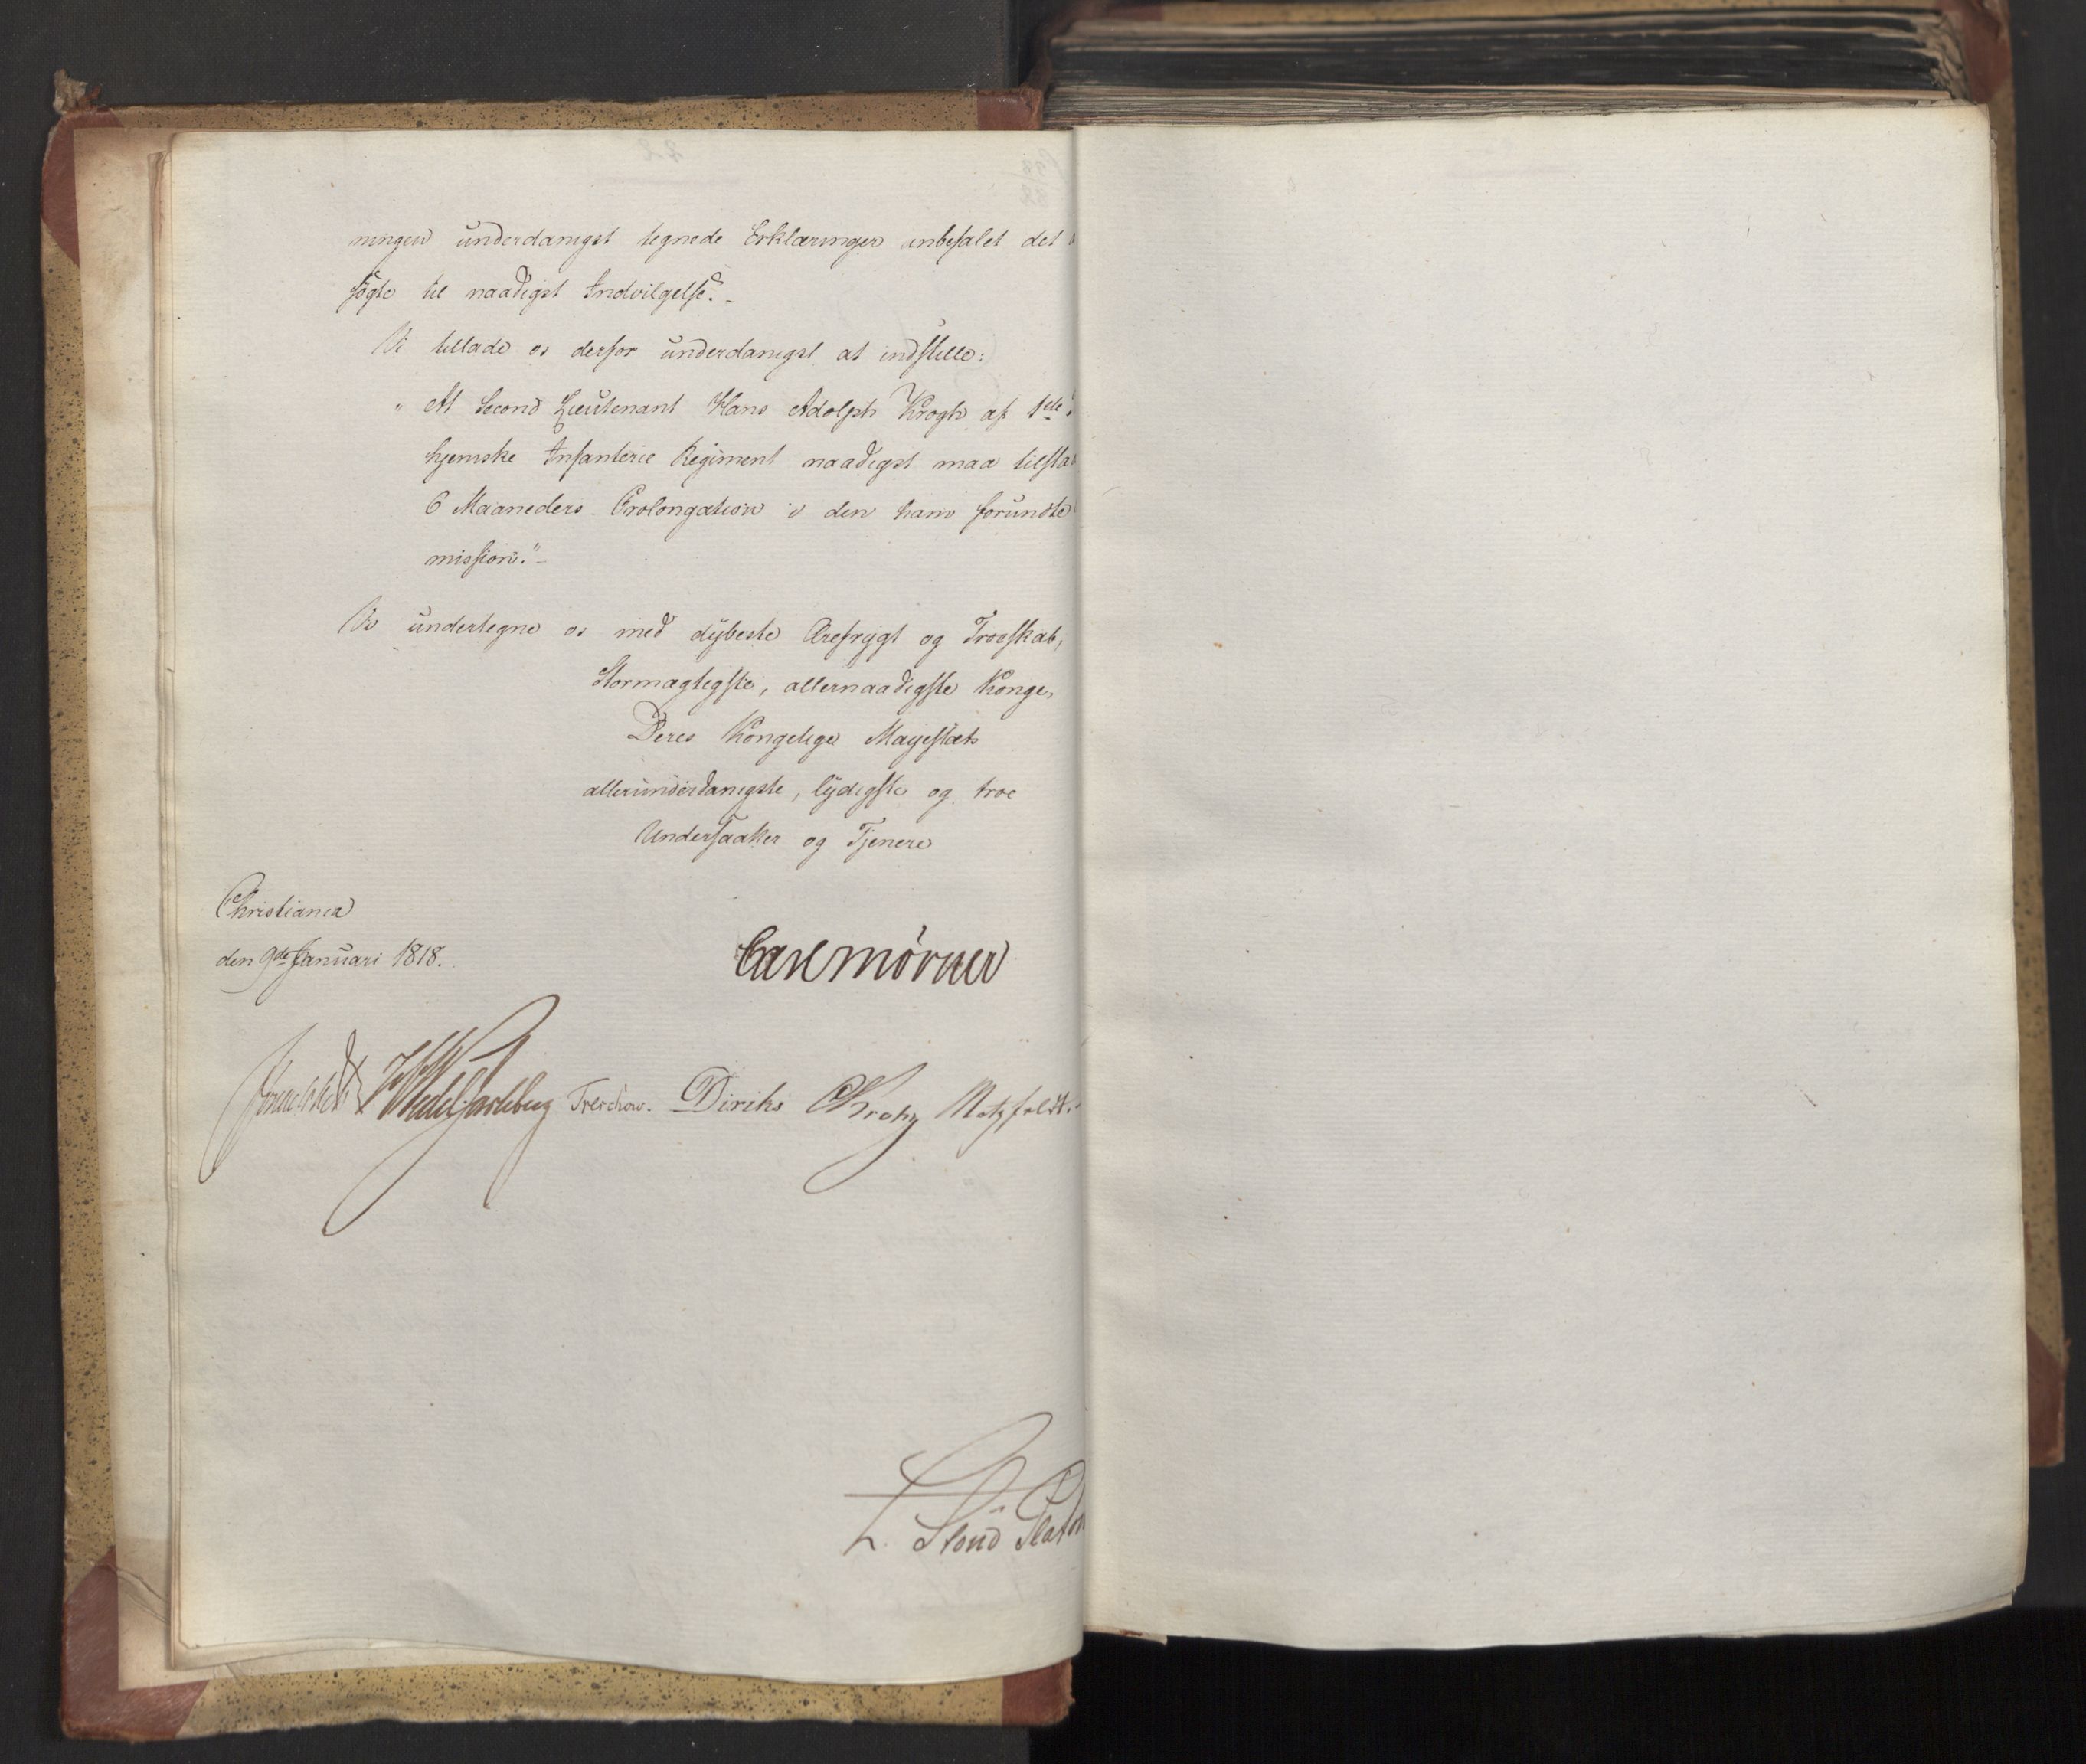 ningen underdanigst tegnede Erklæringer anbefalet det
søgte til naadigst Indvilgelse. -
Vi tillade os derfor underdanigst at indstille:
" At Second Lieutenant Hans Adolph Krogh af 1ste
hjemske Infanterie Regiment naadigst maa tilsta
6 Maaneders Prolongation i den ham forundte
mission." -
Vi undertegne os med dybeste Ærefrygt og Troeskab,
Stormægtigste, allernaadigste Konge,
Deres Kongelige Majestæts
allerunderdanigste, lydigste og troe
Undersaatter og Tjenere
Christiania
den 9de Januari 1818.
Carl Mörner
Sommerhielm Wedel Jarlsberg Treschow. Diriks CKrohg Motzfeldt.
L. Stoud Platou